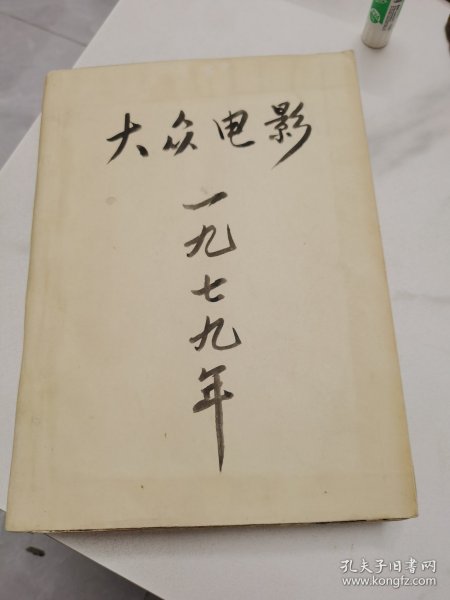 大众电影
一九七九年
孔夫子旧书网
www.kongfz.com